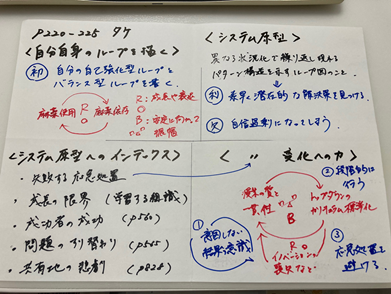 P220-225 タケ
<自分自身のループを描く>
初 自分の自己強化型ループと
バランス型ループを書く
麻薬使用 R 麻薬依存
R:成長や衰退
B:安定に向かって
振幅
<システム原型>
異なる状況化で繰り返し現れる
パターン構造を示すループ図のこと。
利 素早く潜在的な解決策を見つける。
欠 自信過剰になってしまう
<システム原型へのインデックス>
・失敗する応急処置
・成長の限界(学習する組織)
・成功者の成功(P560)
・問題のすり替わり(P565)
・共有地の悲劇(P828)
< 〃 変化への力>
①
意図しない
結果を意識
従業の質と
一貫性
B
トップダウンの
カリキュラム標準化
R
イノベーションの
喪失など
②段階的に
行う
③
応急処置を
避ける